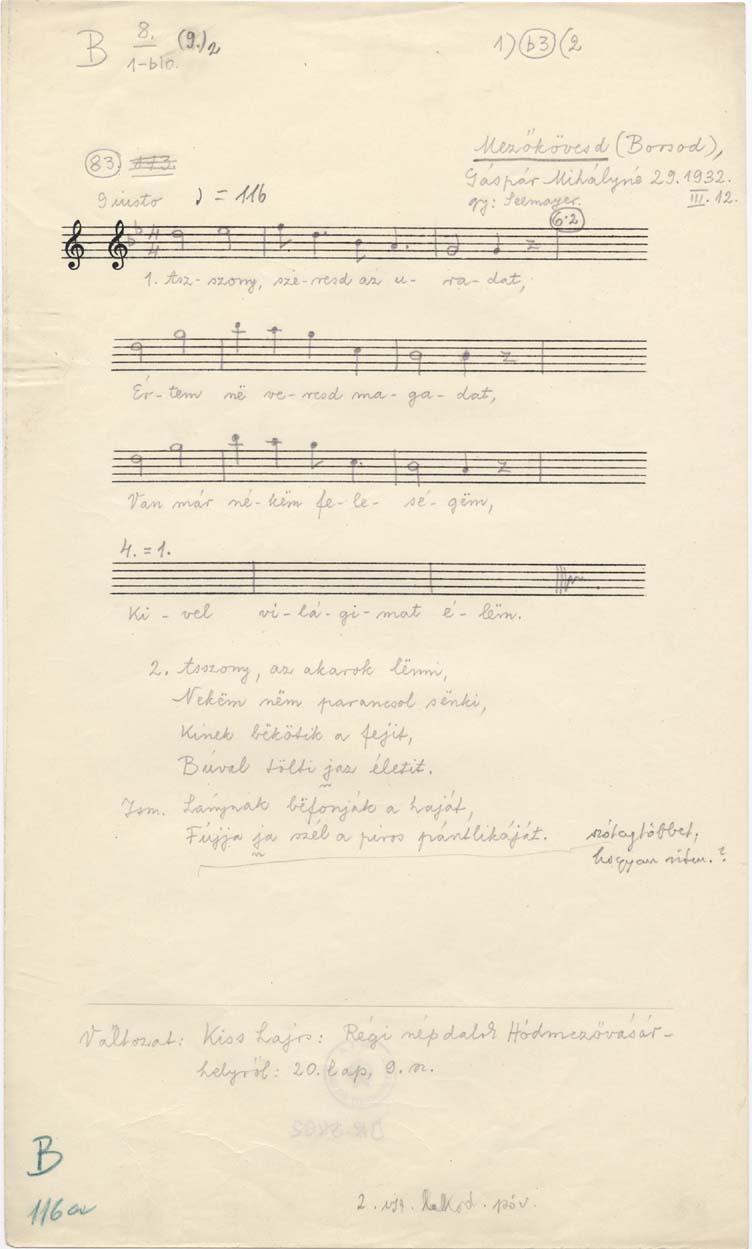 B 8. (9.)2
1-b10.
1) b3 (2
83. 113.
Mezőkövesd (Borsod),
Gáspár Mihályné 29. 1932.
gy: Seemayer. III. 12.
Giusto ♩ = 116
6·2
4
4
1. Asz-szony, sze-resd az u-ra-dat,
Ér-tem në ve-resd ma-ga-dat,
Van már né-këm fe-le-sé-gëm,
4. = 1.
Ki-vel vi-lá-gi-mat é-lëm.
2. Asszony, az akarok lënni,
Nekëm nëm parancsol sënki,
Kinek bëkötik a fejit,
Búval tölti jaz életit.
Ism. Lánynak bëfonják a haját,
Fújja ja szél a piros pántlikáját.
szótagtöbbet,
hogyan ?
Változat: Kiss Lajos: Régi népdalok Hódmezővásár-
helyről: 20. lap, 9. sz.
B
116a
2.